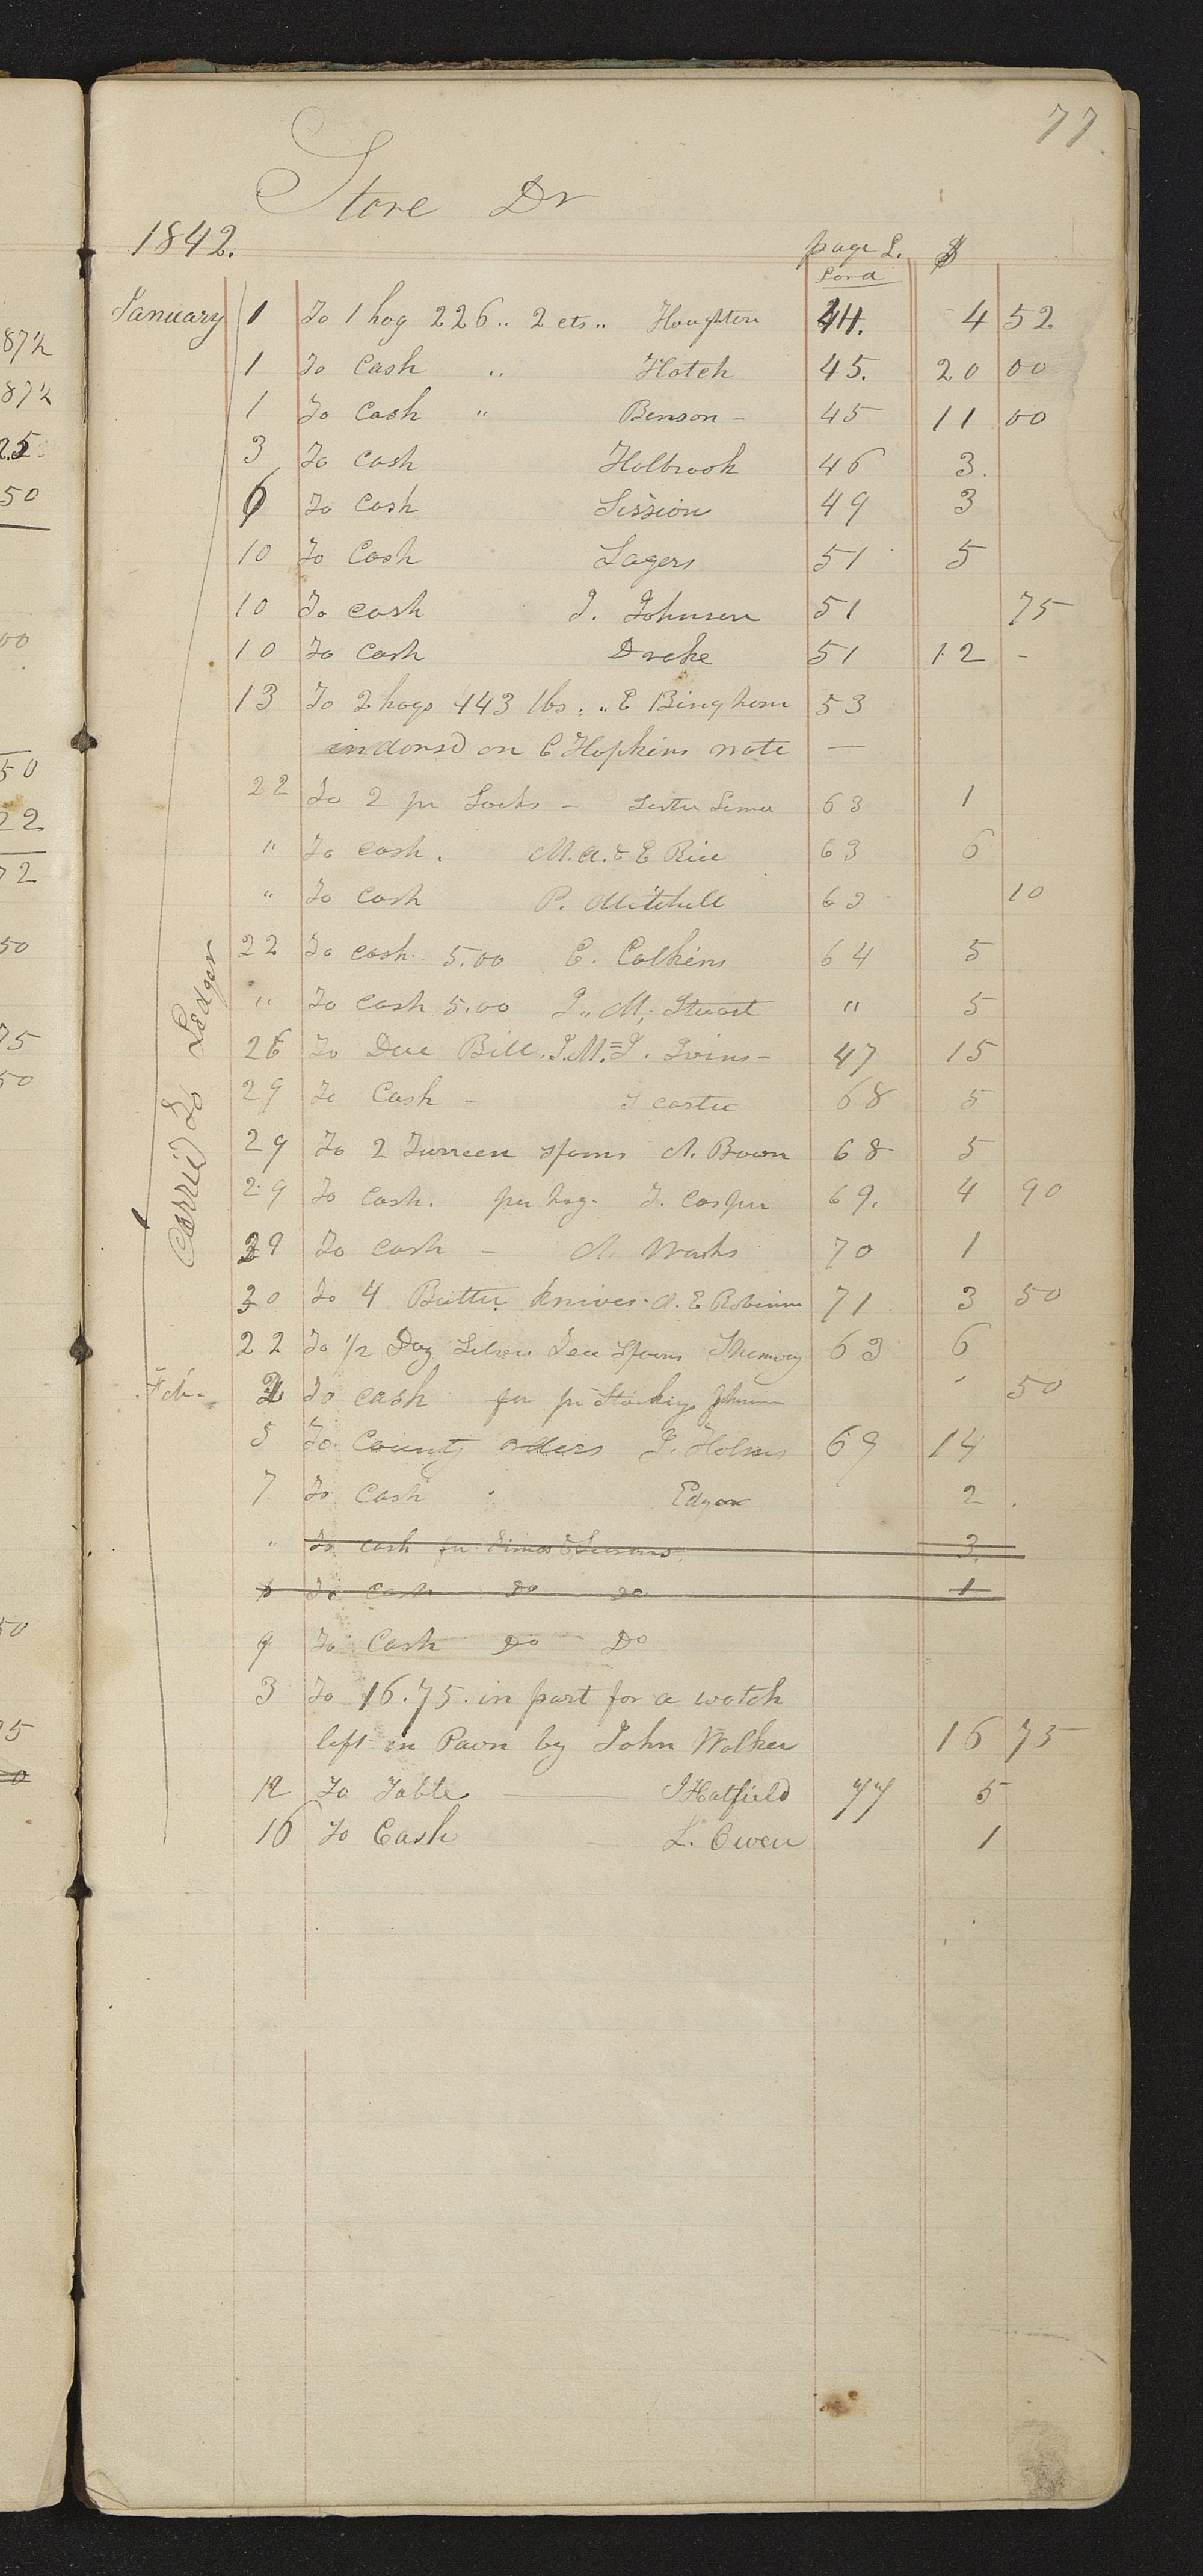 87½
87½
25
50
00
50
22
72
50
75
50
50
77
Store Dr
1842. page L. $
Lord
January 1 To 1 hog 226 .. 2 cts .. Houghton 44. 4 52
1 To Cash .. Hatch 45. 20 00
1 To Cash " Benson - 45 11 00
3 To cash Holbrook 46 3.
6 To Cash Session 49 3
10 To Cash Lagers 51 5
10 To cash J. Johnson 51 75
10 To Cash Drake 51 12 -
13 To 2 hogs 443 lbs. " E Bingham 53
indorsd on C Hopkins note —
22 To 2 pr Socks - Sister 63 1
" To cash. M.A. & E Rice 63 6
" To cash P. Mitchell 63 10
22 To cash 5.00 E. Calkins 64 5
" To Cash 5.00 J.. M. Stuart " 5
26 To Due Bill. J.M. = J. Ivins - 47 15
29 To Cash - J carter 68 5
29 To 2 Turreen spoons A. Bown 68 5
29 To Cash. per hog - J. Casper 69. 4 90
29 To Cash - A. Weeks 70 1
30 To 4 Butter knives - A. E Robinson 71 3 50
22 To ½ Doz Silver Tea Spoons 63 6
Feb. 2 To cash for pr Stockings Johnson 50
5 To County orders J. Holmes 69 14
7 To Cash Edgar 2.
" To cash for 3.
To cash Do Do 1
9 To Cash Do Do
3 To 16.75. in part for a watch
left in Pawn by John Walker 16 75
12 To Table — J Hatfield 77 5
16 To Cash L. Owen 1
Carried to Ledger